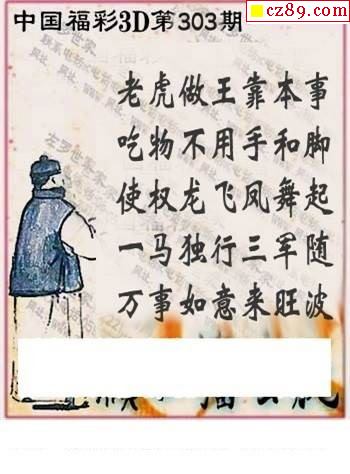 cz89.com
中国福彩3D第303期
老虎做王靠本事
吃物不用手和脚
使权龙飞凤舞起
一马独行三军随
万事如意来旺波